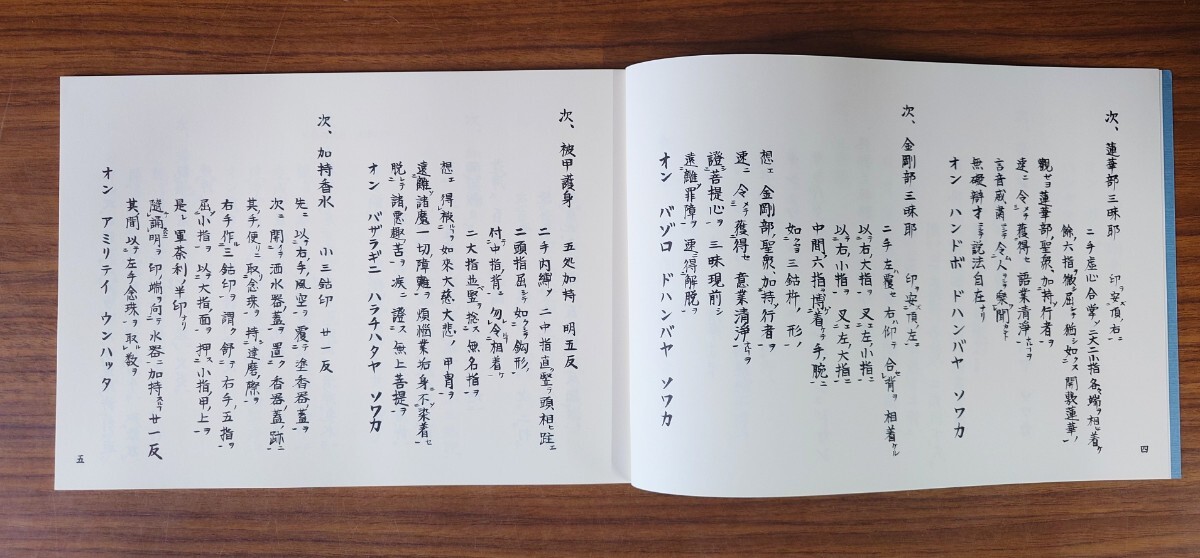 次、蓮華部三昧耶 印ヲ安ズ頂ノ右ニ
二手虚心合掌シ二大二小指各、端ヲ相ヒ着ケ
餘六指ヲ微シ屈シテ猶シ如クス開敷蓮華ノ
觀ゼヨ蓮華部ノ聖衆、加持シテ行者ヲ
速ニ令メ獲得セ語業清淨ナルヲ
言音威肅ニシテ令メ人ヲシテ樂聞セ
無礙辯才ニシテ説法自在ナリ
オン ハンドボ ドハンバヤ ソワカ
次、金剛部三昧耶 印ヲ安ズ頂ノ左ニ
二手左ハ覆セ右ハ仰テ合セ背ヲ相着ケル
以テ右ノ大指ヲ叉エ左ノ小指ニ
以テ右ノ小指ヲ叉エ左ノ大指ニ
中間六指ヲ博着ケテ手ノ腕ニ
如クセヨ三鈷杵ノ形ノ
想エ金剛部ノ聖衆、加持シテ行者ヲ
速ニ令メテ獲得セ意業清淨ナルヲ
證シ菩提心ヲ三昧現前シ
遠離シ罪障ヲ速ニ得解脱ヲ
オン バゾロ ドハンバヤ ソワカ
四
次、被甲護身 五処加持 明五反
二手内縛シ二中指直ク竪テ頭相ヒ跓エ
二頭指屈シテ如クシ鈎形ノ
付中指ノ背ニ勿レ令ルコト相着ケ
二大指並ベ竪テ捻ス無名指ヲ
想エ得ルト被ルコトヲ如来大慈大悲ノ甲冑ヲ
遠離シ諸魔一切障難ヲ煩悩業垢身ニ不染着セ
脱シテ諸悪趣苦ヲ疾ニ證ス無上菩提ヲ
オン バザラギニ ハラチハタヤ ソワカ
次、加持香水 小三鈷印 廿一反
先ニ以テ右ノ手ノ風空ヲ覆テ塗香器ノ蓋ヲ
次ニ開イテ洒水器ノ蓋ヲ置ク香器ノ蓋ノ跡ニ
其ノ手ノ便リニ取リ念珠ヲ持シ達磨ノ際ヲ
右手作ル三鈷印ヲ謂ク舒テ右手ノ五指ヲ
屈シ小指ヲ以テ大指ノ面ヲ押ス小指ノ甲ノ上ヲ
是レ軍茶利ノ半印ナリ
隨テ誦明ヲ印ノ端ヲ向テ水器ニ加持スルコト廿一反
其ノ間以テ左手ノ念珠ヲ取レ数ヲ
オン アミリテイ ウンハッタ
五